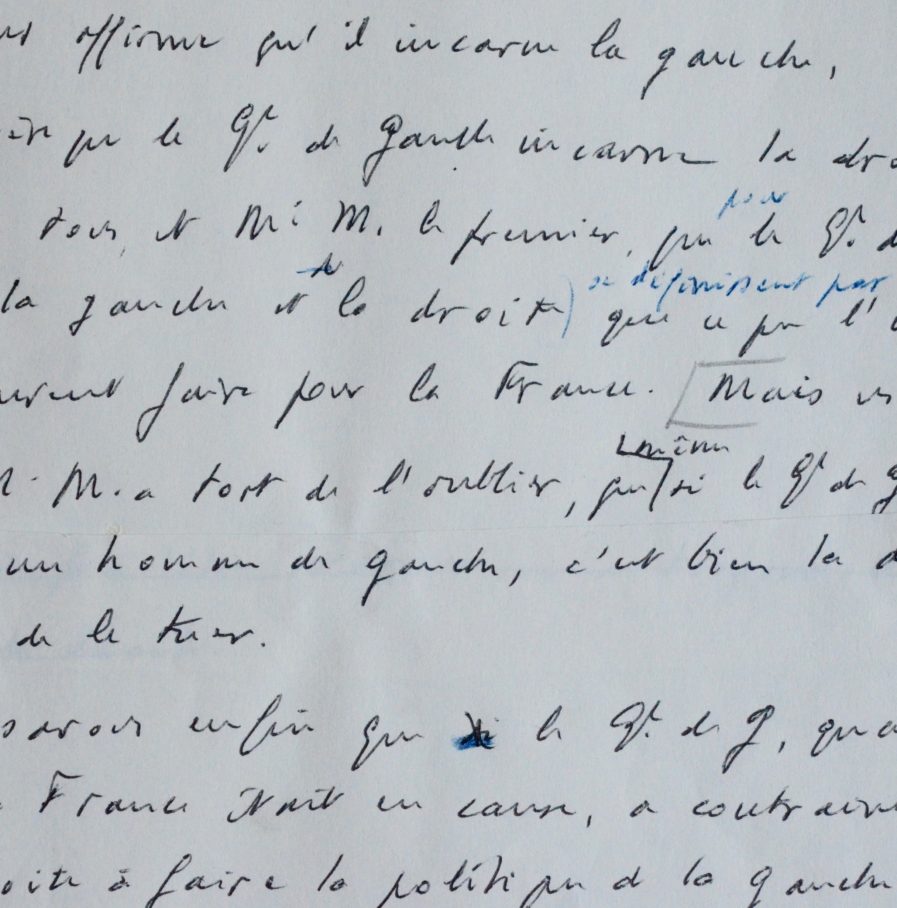 affirme qu'il incarne la gauche,
que le Gl. de Gaulle incarne la
tous, et Mr M. le premier, que le Gl.
pour
la gauche et la droite) que ce que l'
de
se définissent par
faire pour la France. [Mais
M. a tort de l'oublier, que si le Gl de
même
un homme de gauche, c'est bien la
de le tuer.
savons enfin que le Gl. de G,
France était en cause, a
à faire la politique de la gauche